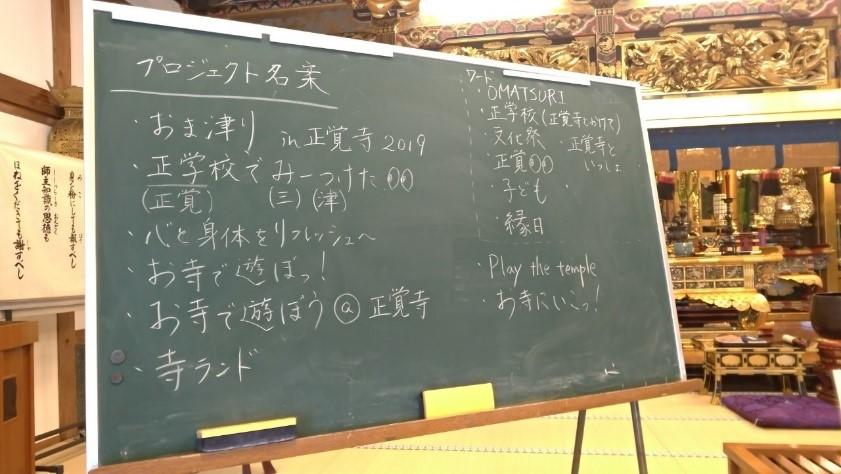 プロジェクト名案
・おま津り in 正覚寺 2019
・正学校でみーつけた〇〇
(正覚) (三)(津)
・心と身体をリフレッシュ〜
・お寺で遊ぼっ!
・お寺で遊ぼう@正覚寺
・寺ランド
ワード
・OMATSURI
・正学校(正覚寺とかけて)
・文化祭
・正覚寺といっしょ
・正覚〇〇
・子ども
・縁日
・Play the temple
・お寺にいこっ!
身を粉にしても報ずべし
師主知識の恩徳も
ほねをくだきても謝すべし